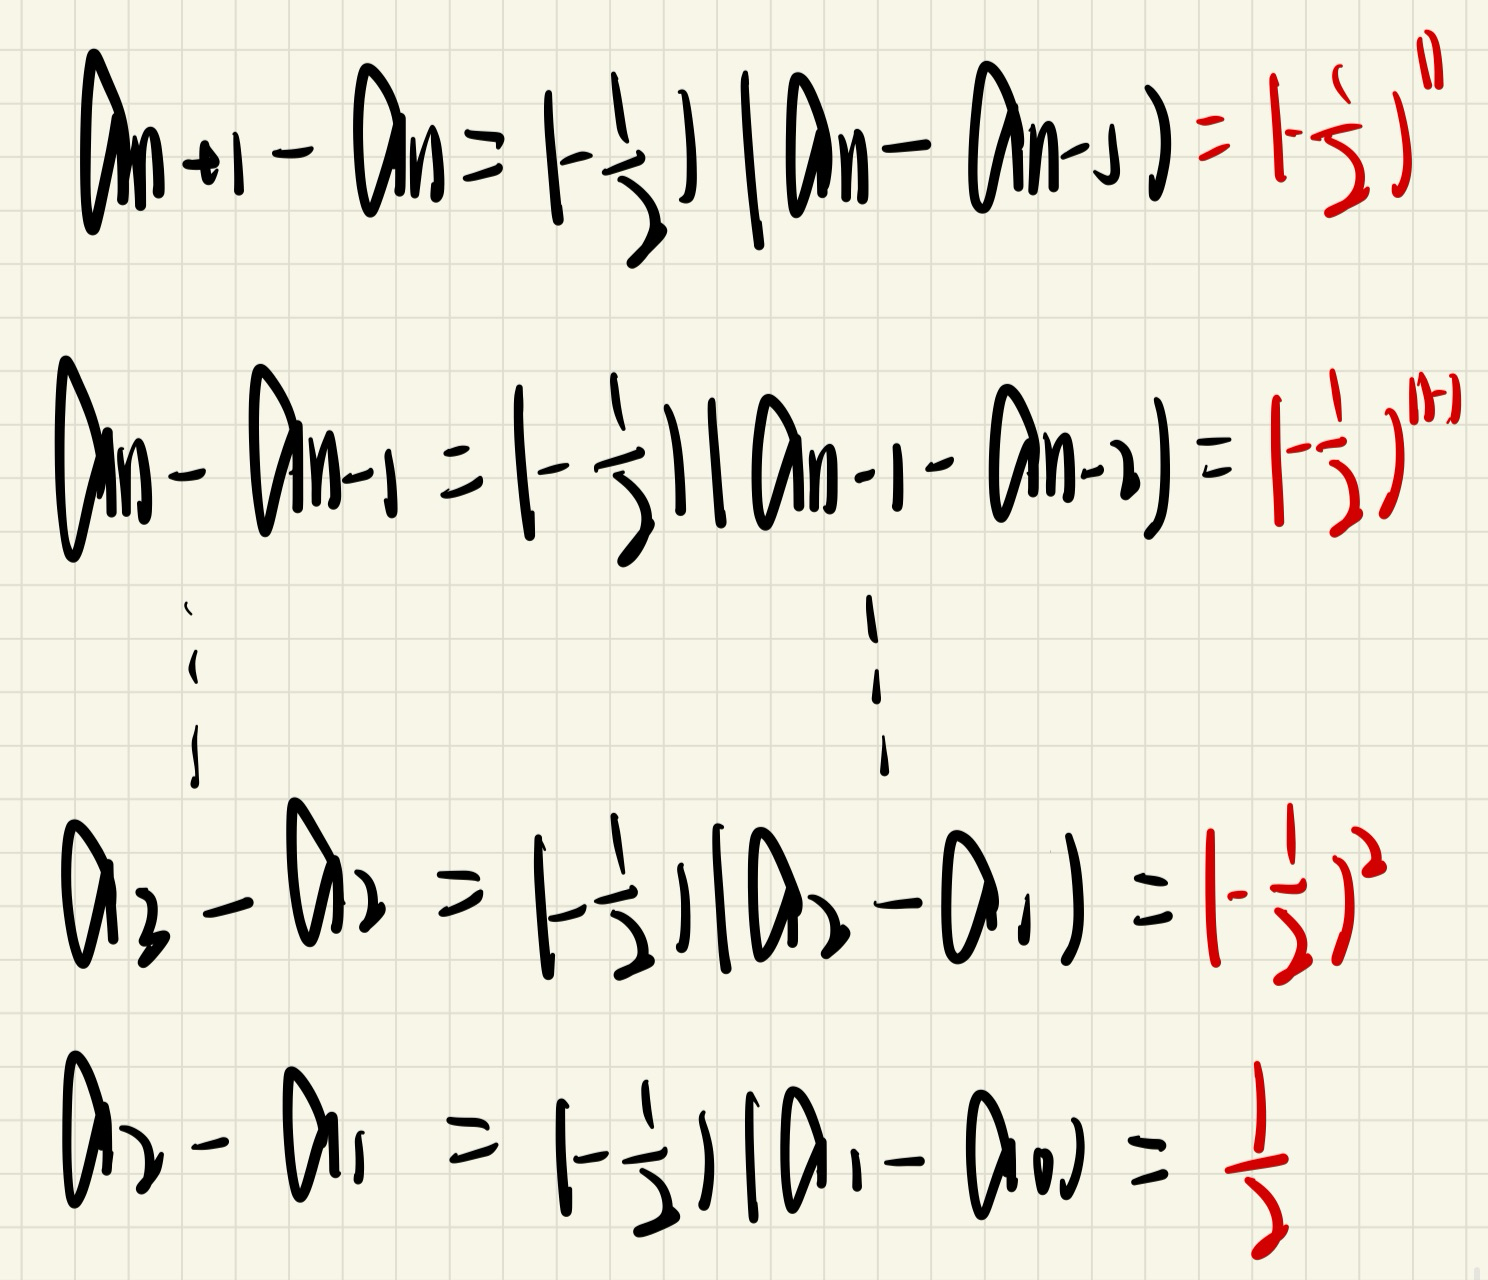 a_{n+1} - a_n = (-\frac{1}{2})(a_n - a_{n-1}) = (-\frac{1}{2})^n
a_n - a_{n-1} = (-\frac{1}{2})(a_{n-1} - a_{n-2}) = (-\frac{1}{2})^{n-1}
⋮ ⋮
a_3 - a_2 = (-\frac{1}{2})(a_2 - a_1) = (-\frac{1}{2})^2
a_2 - a_1 = (-\frac{1}{2})(a_1 - a_0) = \frac{1}{2}